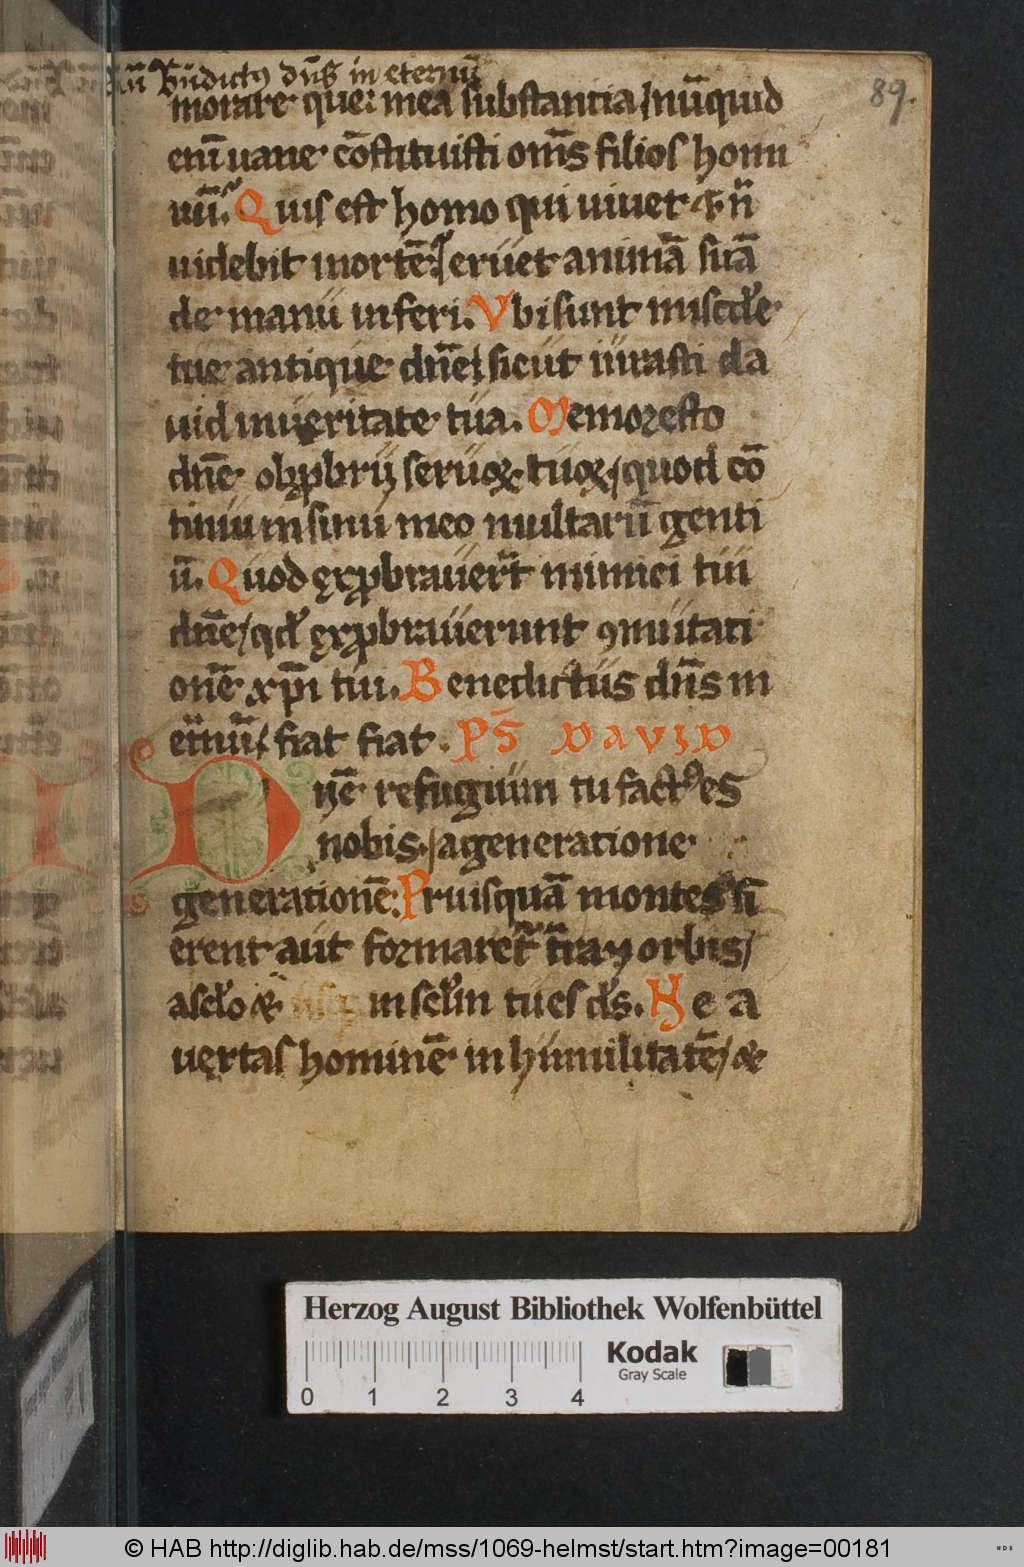 Bn̄dictꝯ dn̄s in eternū
morare que mea substantia / nūquid
89.
enī uane cōstituisti om̄s filios homi
nū. Quis est homo qui uiuet & n̄
uidebit mortē / eruet animā suā
de manu inferi. Vbi sunt misc̄de
tue antique dn̄e / sicut iurasti da
uid in ueritate tua. Memor esto
dn̄e obꝓbrij seruoꝝ tuoꝝ / quod cō
tinui in sinu meo multarū genti
ū. Quod exꝓbrauer̄t inimici tui
dn̄e / qd̄ exꝓbrauerunt ꝯmutati
onē xp̄i tui. Benedictus dn̄s in
et̄nū / fiat fiat. PS̄ DAVID
Dn̄e refugium tu factꝰ es
nobis / a generatione
generationē. Priusquā montes fi
erent aut formaret̄ t̄ra ⁊ orbis /
a sc̄lo & in sc̄lm tu es d̄s. Ne a
uertas hominē in humilitatē / &
Herzog August Bibliothek Wolfenbüttel
Kodak
Gray Scale
0 1 2 3 4
© HAB http://diglib.hab.de/mss/1069-helmst/start.htm?image=00181